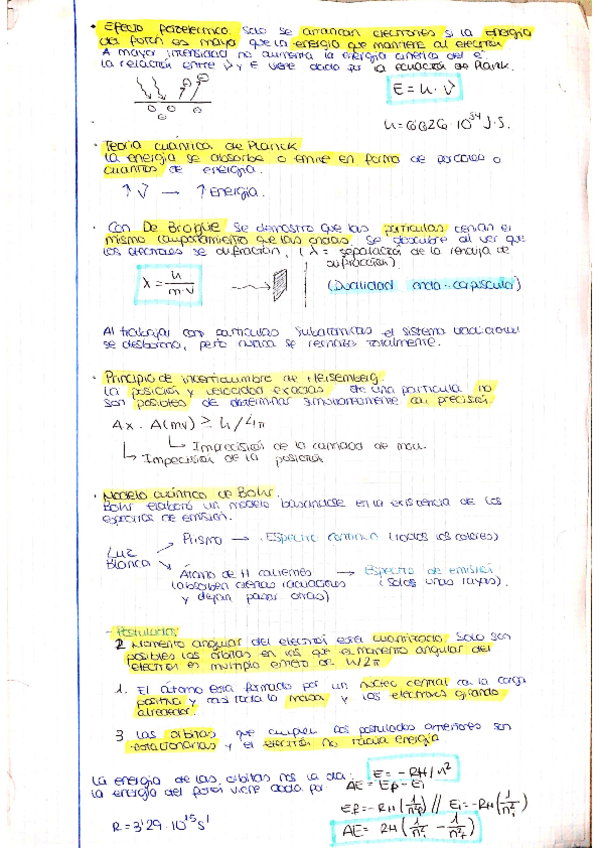 · Efecto fotoelectrico. Solo se arrancan electrones si la energia
del fotón es mayor que la energia que mantiene al electrón
A mayor intensidad no aumenta la energia cinética del e⁻
la relación entre ν y E viene dada por la ecuación de Planck.
E = h · ν
h = 6'626 · 10^34 J·S.
· Teoria cuántica de Planck
la energia se absorbe o emite en forma de
cuantos de energia.
↑ν → ↑Energia.
· Con De Broglie se demostro que las particulas tenian el
mismo comportamiento que las ondas. Se descubre al ver que
los electrones se difractan. (λ = separación de la rendija de
difracción)
λ = h / m·v
(Dualidad onda-corpuscular)
Al trabajar con particulas subatomicas el sistema
se desborona, pero nunca se totalmente.
· Principio de incertidumbre de Heisemberg.
la posición y velocidad exactas de una particula no
son posibles de determinar simultaneamente con precisión.
Δx · Δ(mv) ≥ h/4π
↳ Imprecisión de la cantidad de mov.
↳ Imprecisión de la posición
· Modelo cuántico de Bohr.
Bohr elaboró un modelo basandose en la existencia de los
espectros de emisión.
Luz Blanca
Prisma → Espectro continuo (todos los colores)
Átomo de H calientes → Espectro de emisión
(absorben ciertas radiaciones (Solos unas rayas).
y dejan pasar otras)
- Postulados:
2 Momento angular del electrón esta cuantizado. Solo son
posibles las órbitas en las que el momento angular del
electron es multiplo entero de h/2π
1. El átomo esta formado por un núcleo central con la carga
positiva y casi toda la masa y los electrones girando
alrededor.
3 Las orbitas que cumplen los postulados anteriores son
estacionarias y el electrón no radia energia
La energia de las orbitas nos la da: E = -RH/n²
la energia del fotón viene dada por ΔE = Ef - Ei
Ef = -RH (1/nf²) // Ei = -RH (1/ni²)
R = 3'29 · 10^15 s^1
ΔE = RH (1/ni² - 1/nf²)